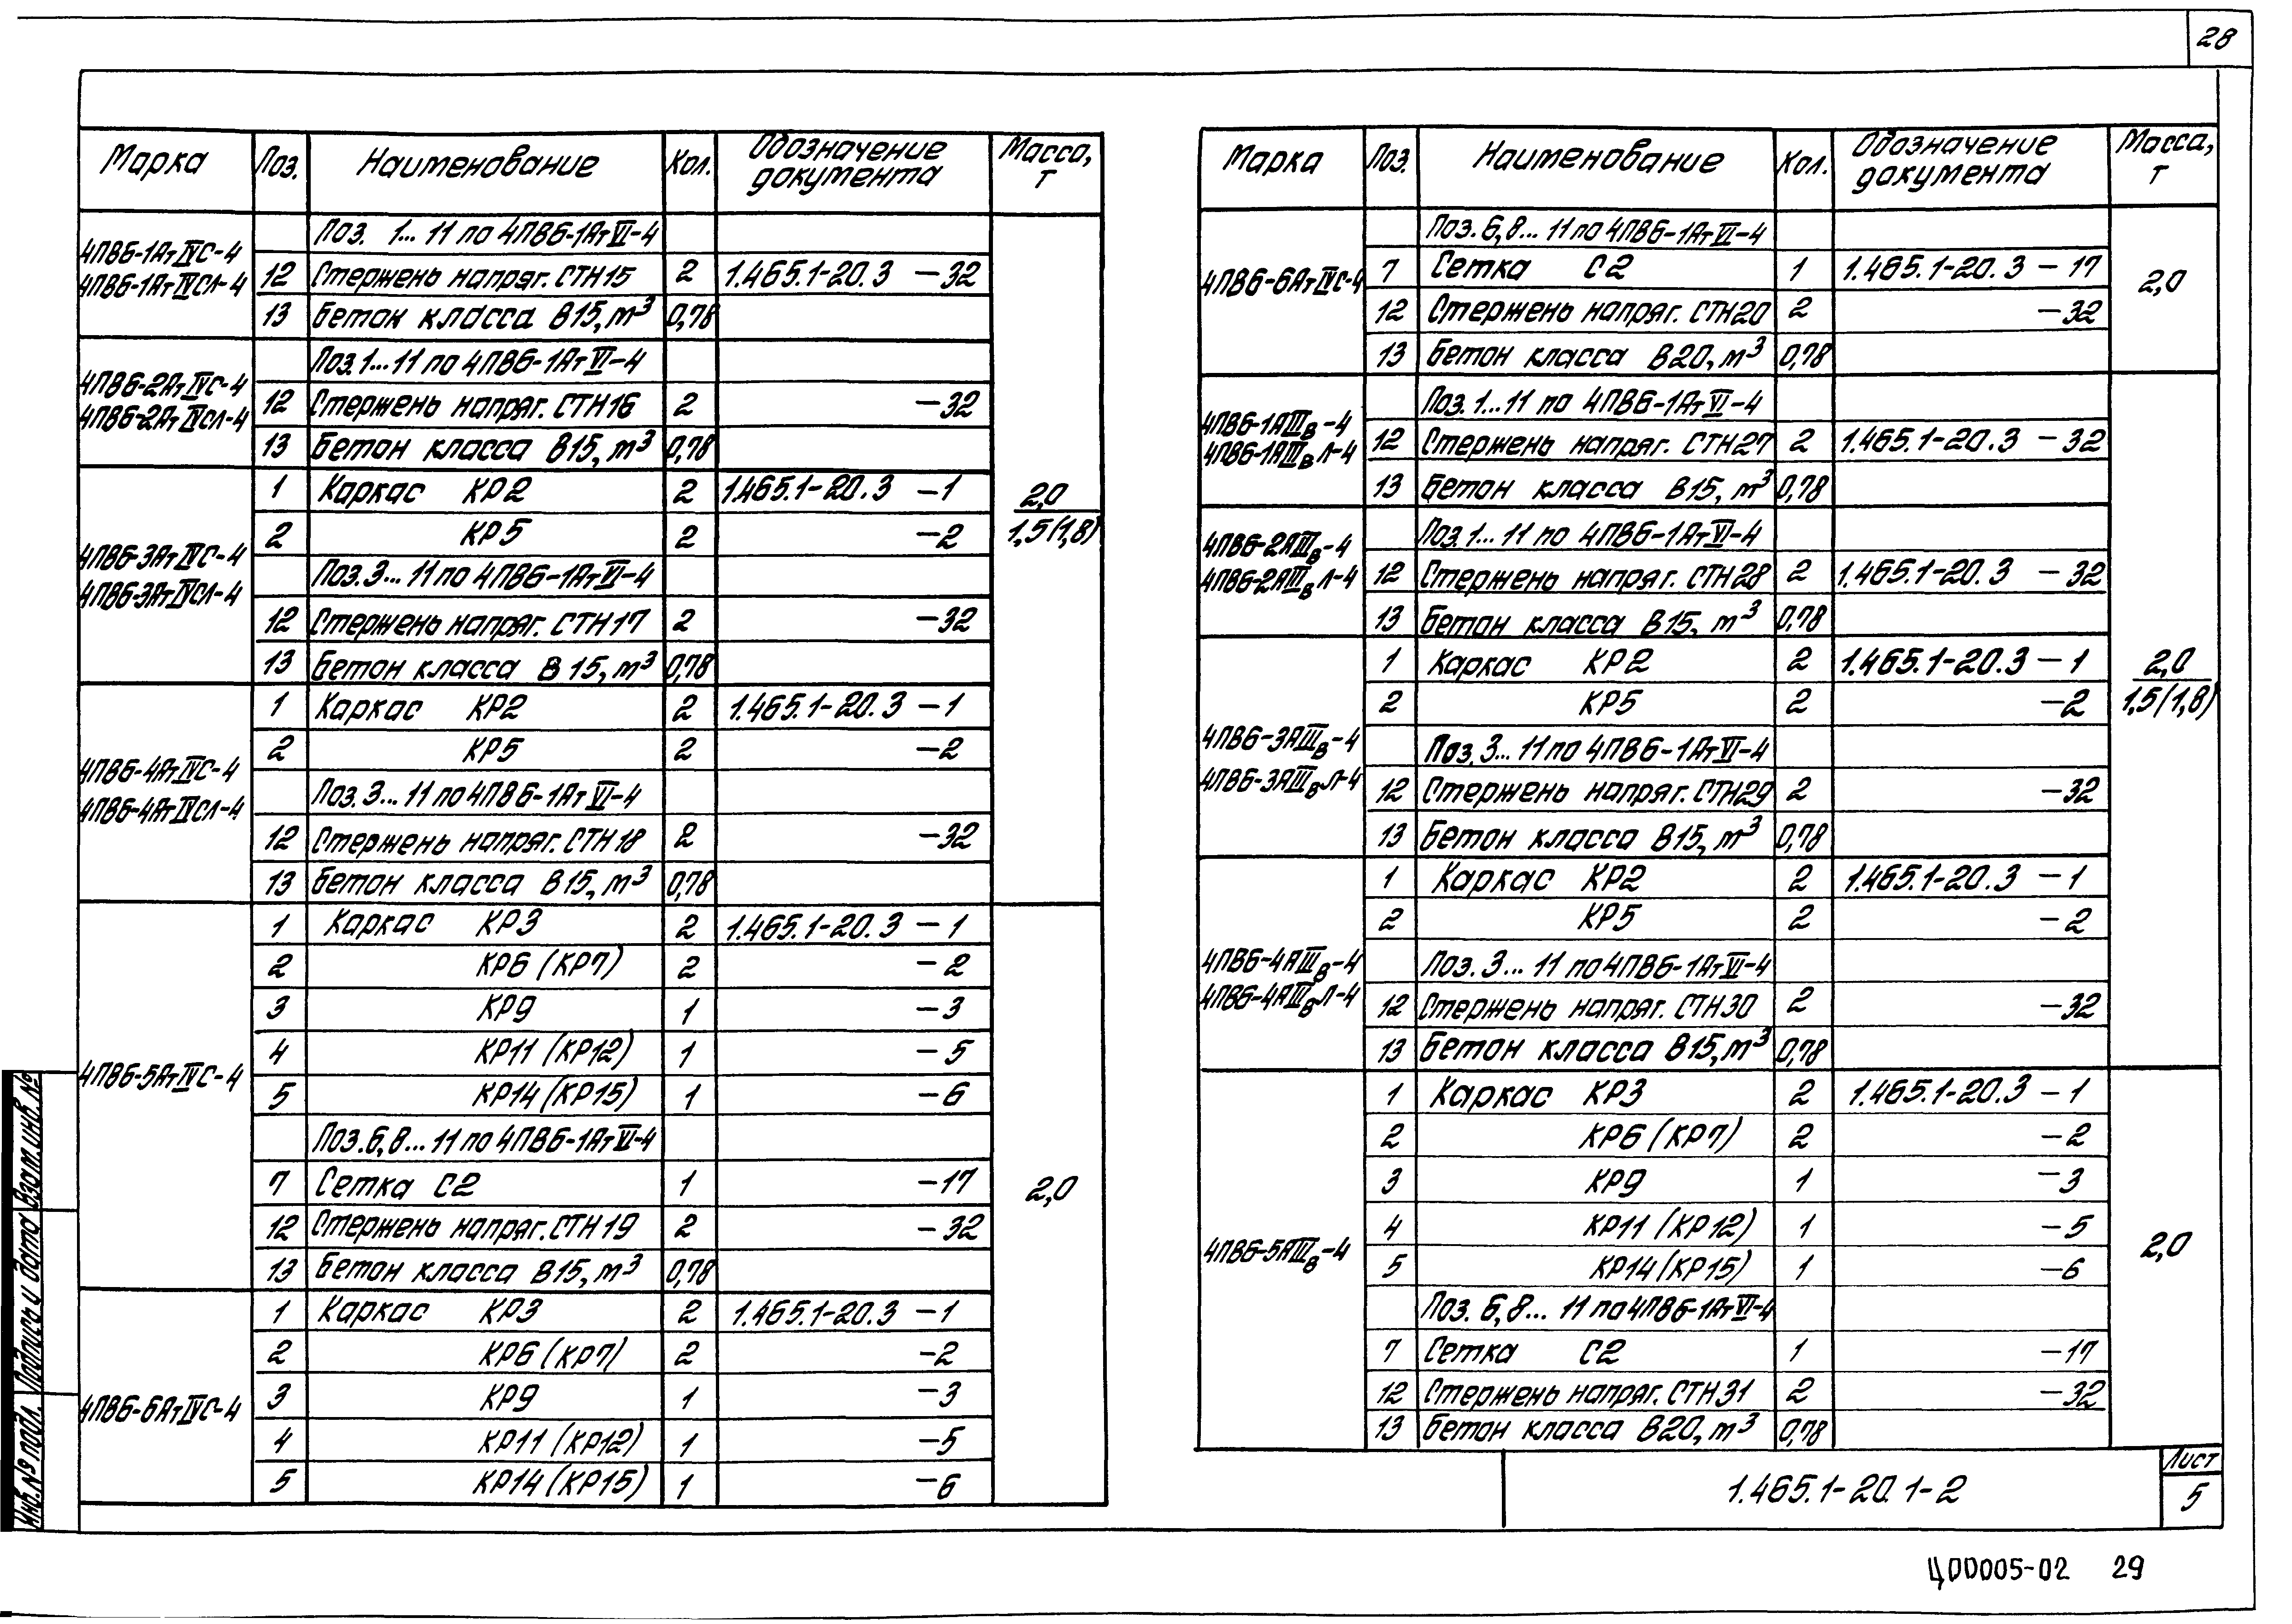 28
Марка Поз. Наименование Кол. Обозначение документа Масса, т
4ПВ6-1АтIVС-4
4ПВ6-1АтIVСЛ-4
Поз. 1...11 по 4ПВ6-1АтVI-4
12 Стержень напряг. СТН15 2 1.465.1-20.3 -32
13 Бетон класса В15, м³ 0,78
4ПВ6-2АтIVС-4
4ПВ6-2АтIVСЛ-4
Поз. 1...11 по 4ПВ6-1АтVI-4
12 Стержень напряг. СТН16 2 -32
13 Бетон класса В15, м³ 0,78
4ПВ6-3АтIVС-4
4ПВ6-3АтIVСЛ-4
1 Каркас КР2 2 1.465.1-20.3 -1
2 КР5 2 -2
Поз. 3...11 по 4ПВ6-1АтVI-4
12 Стержень напряг. СТН17 2 -32
13 Бетон класса В15, м³ 0,78
2,0
1,5(1,8)
4ПВ6-4АтIVС-4
4ПВ6-4АтIVСЛ-4
1 Каркас КР2 2 1.465.1-20.3 -1
2 КР5 2 -2
Поз. 3...11 по 4ПВ6-1АтVI-4
12 Стержень напряг. СТН18 2 -32
13 Бетон класса В15, м³ 0,78
4ПВ6-5АтIVС-4
1 Каркас КР3 2 1.465.1-20.3 -1
2 КР6 (КР7) 2 -2
3 КР9 1 -3
4 КР11 (КР12) 1 -5
5 КР14 (КР15) 1 -6
Поз. 6,8...11 по 4ПВ6-1АтVI-4
7 Сетка С2 1 -17
12 Стержень напряг. СТН19 2 -32
13 Бетон класса В15, м³ 0,78
2,0
4ПВ6-6АтIVС-4
1 Каркас КР3 2 1.465.1-20.3 -1
2 КР6 (КР7) 2 -2
3 КР9 1 -3
4 КР11 (КР12) 1 -5
5 КР14 (КР15) 1 -6
Марка Поз. Наименование Кол. Обозначение документа Масса, т
4ПВ6-6АтIVС-4
Поз. 6,8...11 по 4ПВ6-1АтVI-4
7 Сетка С2 1 1.465.1-20.3 -17
12 Стержень напряг. СТН20 2 -32
13 Бетон класса В20, м³ 0,78
2,0
4ПВ6-1АIIIв-4
4ПВ6-1АIIIвЛ-4
Поз. 1...11 по 4ПВ6-1АтVI-4
12 Стержень напряг. СТН27 2 1.465.1-20.3 -32
13 Бетон класса В15, м³ 0,78
4ПВ6-2АIIIв-4
4ПВ6-2АIIIвЛ-4
Поз. 1...11 по 4ПВ6-1АтVI-4
12 Стержень напряг. СТН28 2 1.465.1-20.3 -32
13 Бетон класса В15, м³ 0,78
4ПВ6-3АIIIв-4
4ПВ6-3АIIIвЛ-4
1 Каркас КР2 2 1.465.1-20.3 -1
2 КР5 2 -2
Поз. 3...11 по 4ПВ6-1АтVI-4
12 Стержень напряг. СТН29 2 -32
13 Бетон класса В15, м³ 0,78
2,0
1,5(1,8)
4ПВ6-4АIIIв-4
4ПВ6-4АIIIвЛ-4
1 Каркас КР2 2 1.465.1-20.3 -1
2 КР5 2 -2
Поз. 3...11 по 4ПВ6-1АтVI-4
12 Стержень напряг. СТН30 2 -32
13 Бетон класса В15, м³ 0,78
4ПВ6-5АIIIв-4
1 Каркас КР3 2 1.465.1-20.3 -1
2 КР6 (КР7) 2 -2
3 КР9 1 -3
4 КР11 (КР12) 1 -5
5 КР14 (КР15) 1 -6
Поз. 6,8...11 по 4ПВ6-1АтVI-4
7 Сетка С2 1 -17
12 Стержень напряг. СТН31 2 -32
13 Бетон класса В20, м³ 0,78
2,0
Инв.№ подл. Подпись и дата Взам.инв.№
1.465.1-20.1-2
Лист
5
Ц00005-02 29